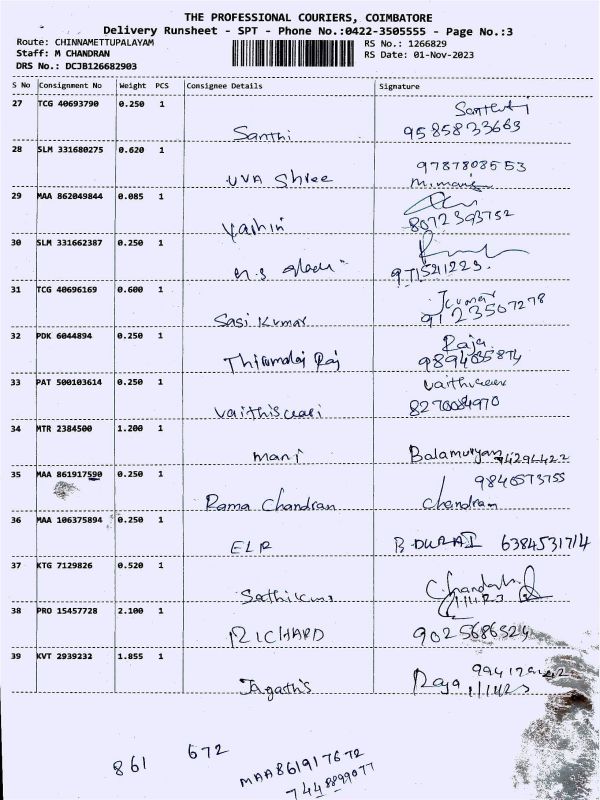 THE PROFESSIONAL COURIERS, COIMBATORE
Delivery Runsheet - SPT - Phone No.:0422-3505555 - Page No.:3
Route: CHINNAMETTUPALAYAM
RS No.: 1266829
Staff: M CHANDRAN
RS Date: 01-Nov-2023
DRS No.: DCJB126682903
S No Consignment No Weight PCS Consignee Details Signature
27 TCG 40693790 0.250 1
Santhi 9585833663
28 SLM 331680275 0.620 1
9787808553
UVA Shree
29 MAA 862049844 0.085 1
Yashini 8072393752
30 SLM 331662387 0.250 1
971521223.
31 TCG 40696169 0.600 1
Jkumar
Sasi Kumar 9123507278
32 PDK 6044894 0.250 1
Raja
Thirumalai Raj
33 PAT 500103614 0.250 1
8270084970
34 MTR 2384500 1.200 1
mani Balamurugan
35 MAA 861917590 0.250 1
Rama Chandran Chandran
36 MAA 106375894 0.250 1
ELR B.DURAI 6384531714
37 KTG 7129826 0.520 1
38 PRO 15457728 2.100 1
RICHARD 9025686524
39 KVT 2939232 1.855 1
Raja 1/11/23
861 672
MAA861917672
7448899077